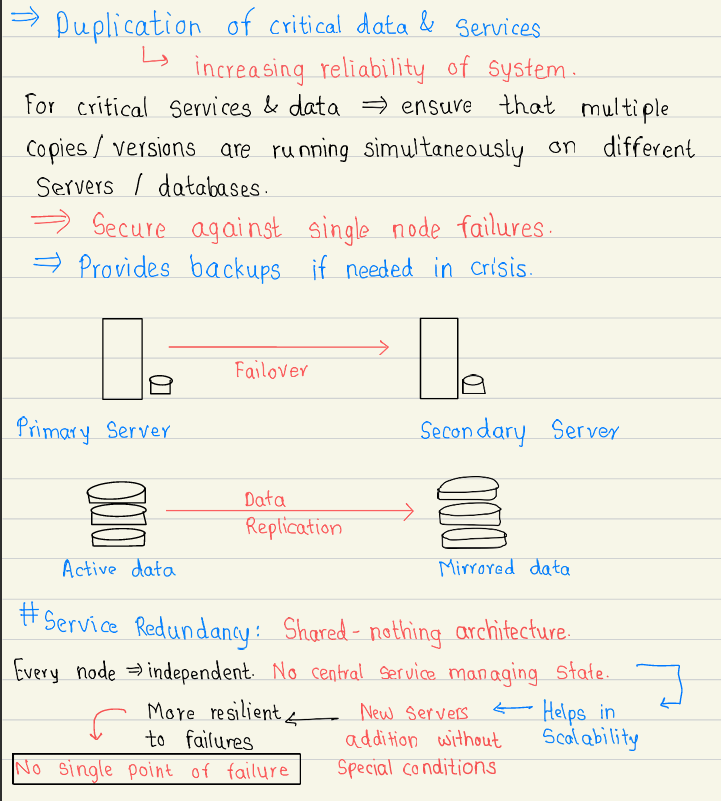 ⇒ Duplication of critical data & Services
↳ increasing reliability of system.
For critical services & data ⇒ ensure that multiple
copies / versions are running simultaneously on different
Servers / databases.
⇒ Secure against single node failures.
⇒ Provides backups if needed in crisis.
Failover
Primary Server
Secondary Server
Data
Replication
Active data
Mirrored data
# Service Redundancy: Shared-nothing architecture.
Every node ⇒ independent. No central service managing state.
More resilient ← New servers ← Helps in
to failures addition without Scalability
No single point of failure Special conditions